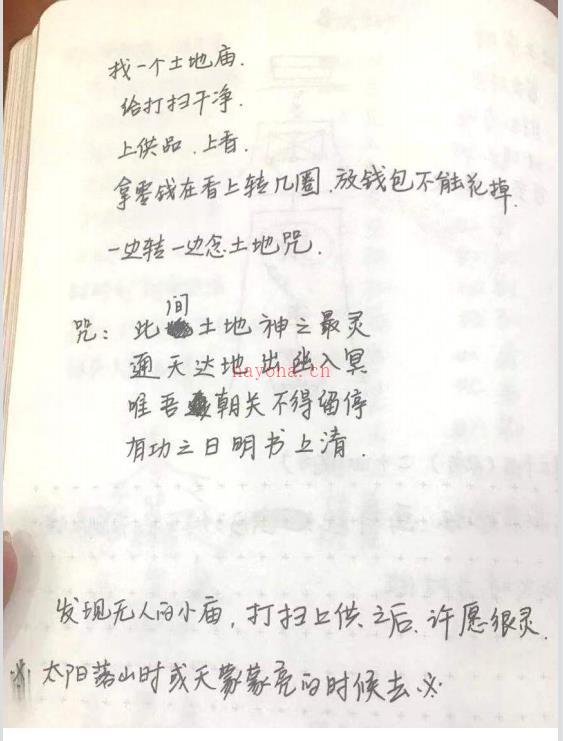 找一个土地庙.
给打扫干净.
上供品.上香.
拿零钱在香上转几圈.放钱包不能花掉.
一边转一边念土地咒.
间
咒：此土地神之最灵
通天达地出幽入冥
hayona.cn
唯吾朝关不得留停
有功之日明书上清.
发现无人的小庙,打扫上供之后.许愿很灵.
太阳落山时或天蒙蒙亮的时候去.